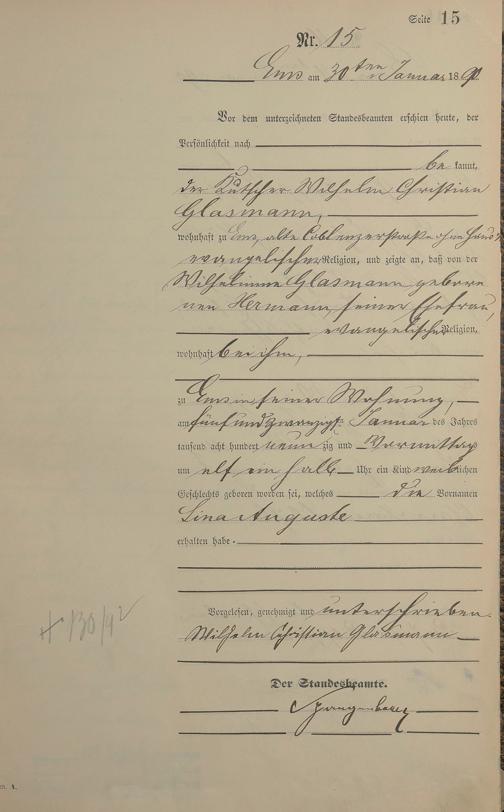 Seite 15
Nr. 15
Ems am 30ten Januar 1890
Vor dem unterzeichneten Standesbeamten erschien heute, der
Persönlichkeit nach
be kannt,
der Kutscher Wilhelm Christian
Glasmann,
wohnhaft zu Ems, alte Coblenzerstraße ohne Haus
evangelischer Religion, und zeigte an, daß von der
Wilhelmine Glasmann gebore
nen Hermann, seiner Ehefrau,
evangelischer Religion,
wohnhaft bei ihm,
zu Ems in seiner Wohnung,
am fünfundzwanzigst. Januar des Jahres
tausend acht hundert neun zig und Vormittag
um elf ein halb Uhr ein Kind weiblichen
Geschlechts geboren worden sei, welches die Vornamen
Lina Auguste
erhalten habe.
Vorgelesen, genehmigt und unterschrieben.
Wilhelm Christian Glasmann
Der Standesbeamte.
Spangenberg